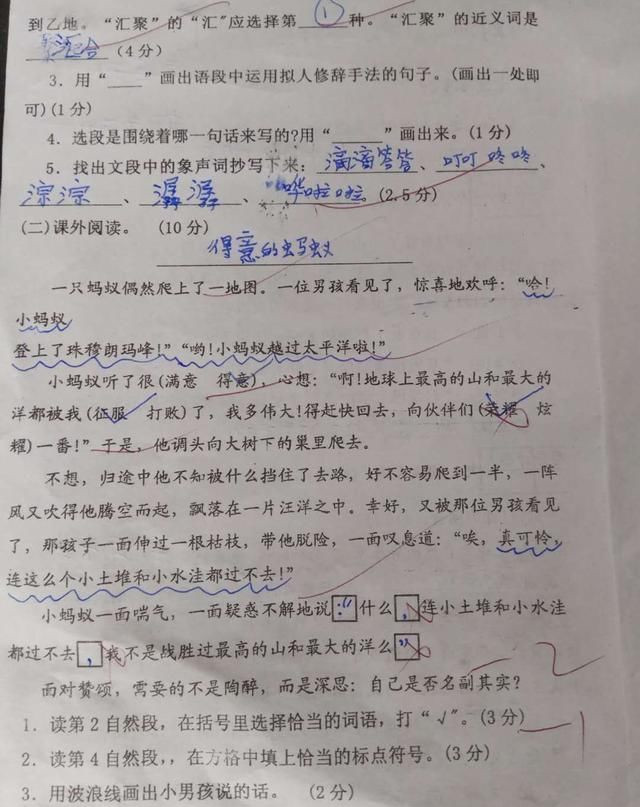 到乙地。“汇聚”的“汇"应选择第 ① 种。“汇聚”的近义词是
汇合 (4分)
3.用“____”画出语段中运用拟人修辞手法的句子。(画出一处即
可)(1分)
4.选段是围绕着哪一句话来写的?用“______”画出来。(1分)
5.找出文段中的象声词抄写下来: 滴滴答答、叮叮咚咚、
淙淙、潺潺、哗啦啦(2.5分)
(二)课外阅读。 (10分)
得意的蚂蚁
一只蚂蚁偶然爬上了一地图。一位男孩看见了,惊喜地欢呼:“哈!
小蚂蚁
登上了珠穆朗玛峰!”“哟!小蚂蚁越过太平洋啦!”
小蚂蚁听了很(满意 得意),心想:“啊!地球上最高的山和最大的
洋都被我(征服 打败)了,我多伟大!得赶快回去,向伙伴们(荣耀 炫
耀)一番!”于是,他调头向大树下的巢里爬去。
不想,归途中他不知被什么挡住了去路,好不容易爬到一半,一阵
风又吹得他腾空而起,飘落在一片汪洋之中。幸好,又被那位男孩看见
了,那孩子一面伸过一根枯枝,带他脱险,一面叹息道:“唉,真可怜,
连这么个小土堆和小水洼都过不去!”
小蚂蚁一面喘气,一面疑惑不解地说:“什么,连小土堆和小水洼
都过不去,我不是战胜过最高的山和最大的洋么”
面对赞颂,需要的不是陶醉,而是深思:自己是否名副其实?
1.读第2自然段,在括号里选择恰当的词语,打“√"。(3分)
2.读第4自然段,,在方格中填上恰当的标点符号。(3分)
3.用波浪线画出小男孩说的话。 (2分)